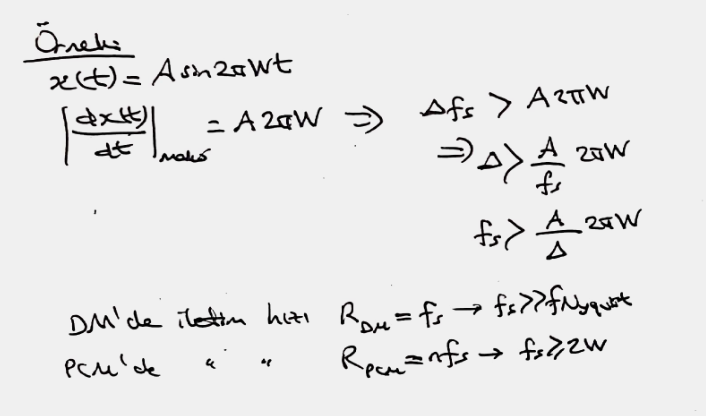 Örnek:
x(t) = A sin2πWt
|dx(t)/dt|maks = A2πW ⇒ Δfs > A2πW
⇒ Δ > A/fs 2πW
fs > A/Δ 2πW
DM'de iletim hızı R_DM = fs → fs >> fNyquist
PCM'de " " R_PCM = nfs → fs ≥ 2W